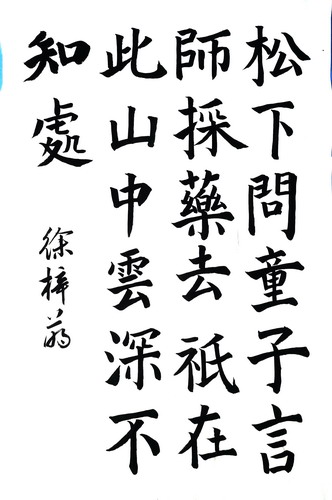 松下問童子言
師採藥去祇在
此山中雲深不
知處
徐梓